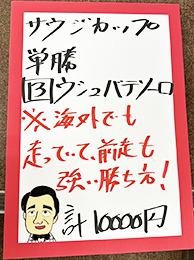 サウジカップ
単勝
13ウシュバテソーロ
※海外でも
走っていて、前走も
強い勝ち方!
計10000円